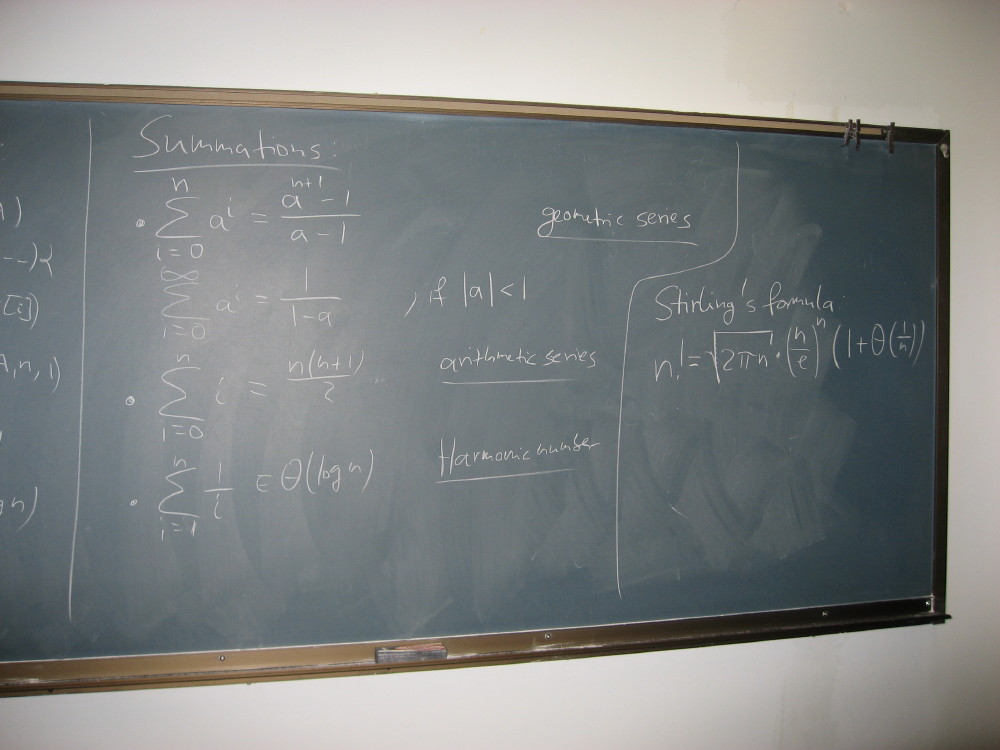 A)
--)2
[i])
A,n,1)
gn)
Summations:
• ∑_{i=0}^{n} a^i = (a^{n+1} - 1)/(a - 1) geometric series
∑_{i=0}^{∞} a^i = 1/(1-a) , if |a| < 1
• ∑_{i=0}^{n} i = n(n+1)/2 arithmetic series
• ∑_{i=1}^{n} 1/i ∈ Θ(log n) Harmonic number
Stirling's formula:
n! = √(2πn) · (n/e)^n (1 + Θ(1/n))